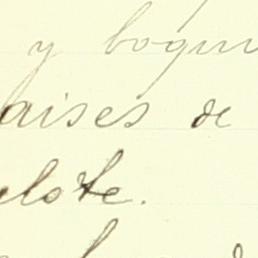 y boqui
aises de
elote.